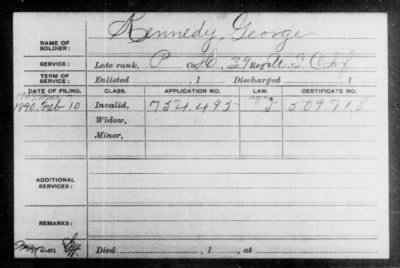 NAME OF SOLDIER: Kennedy, George
SERVICE: Late rank, P Co. H, 39 Reg't U.S.C. Inf
TERM OF SERVICE: Enlisted , 1 Discharged , 1
DATE OF FILING. CLASS. APPLICATION NO. LAW. CERTIFICATE NO.
1890, Feb 10 Invalid, 754.495 509718
Widow,
Minor,
ADDITIONAL SERVICES:
REMARKS:
Died , 1 , at